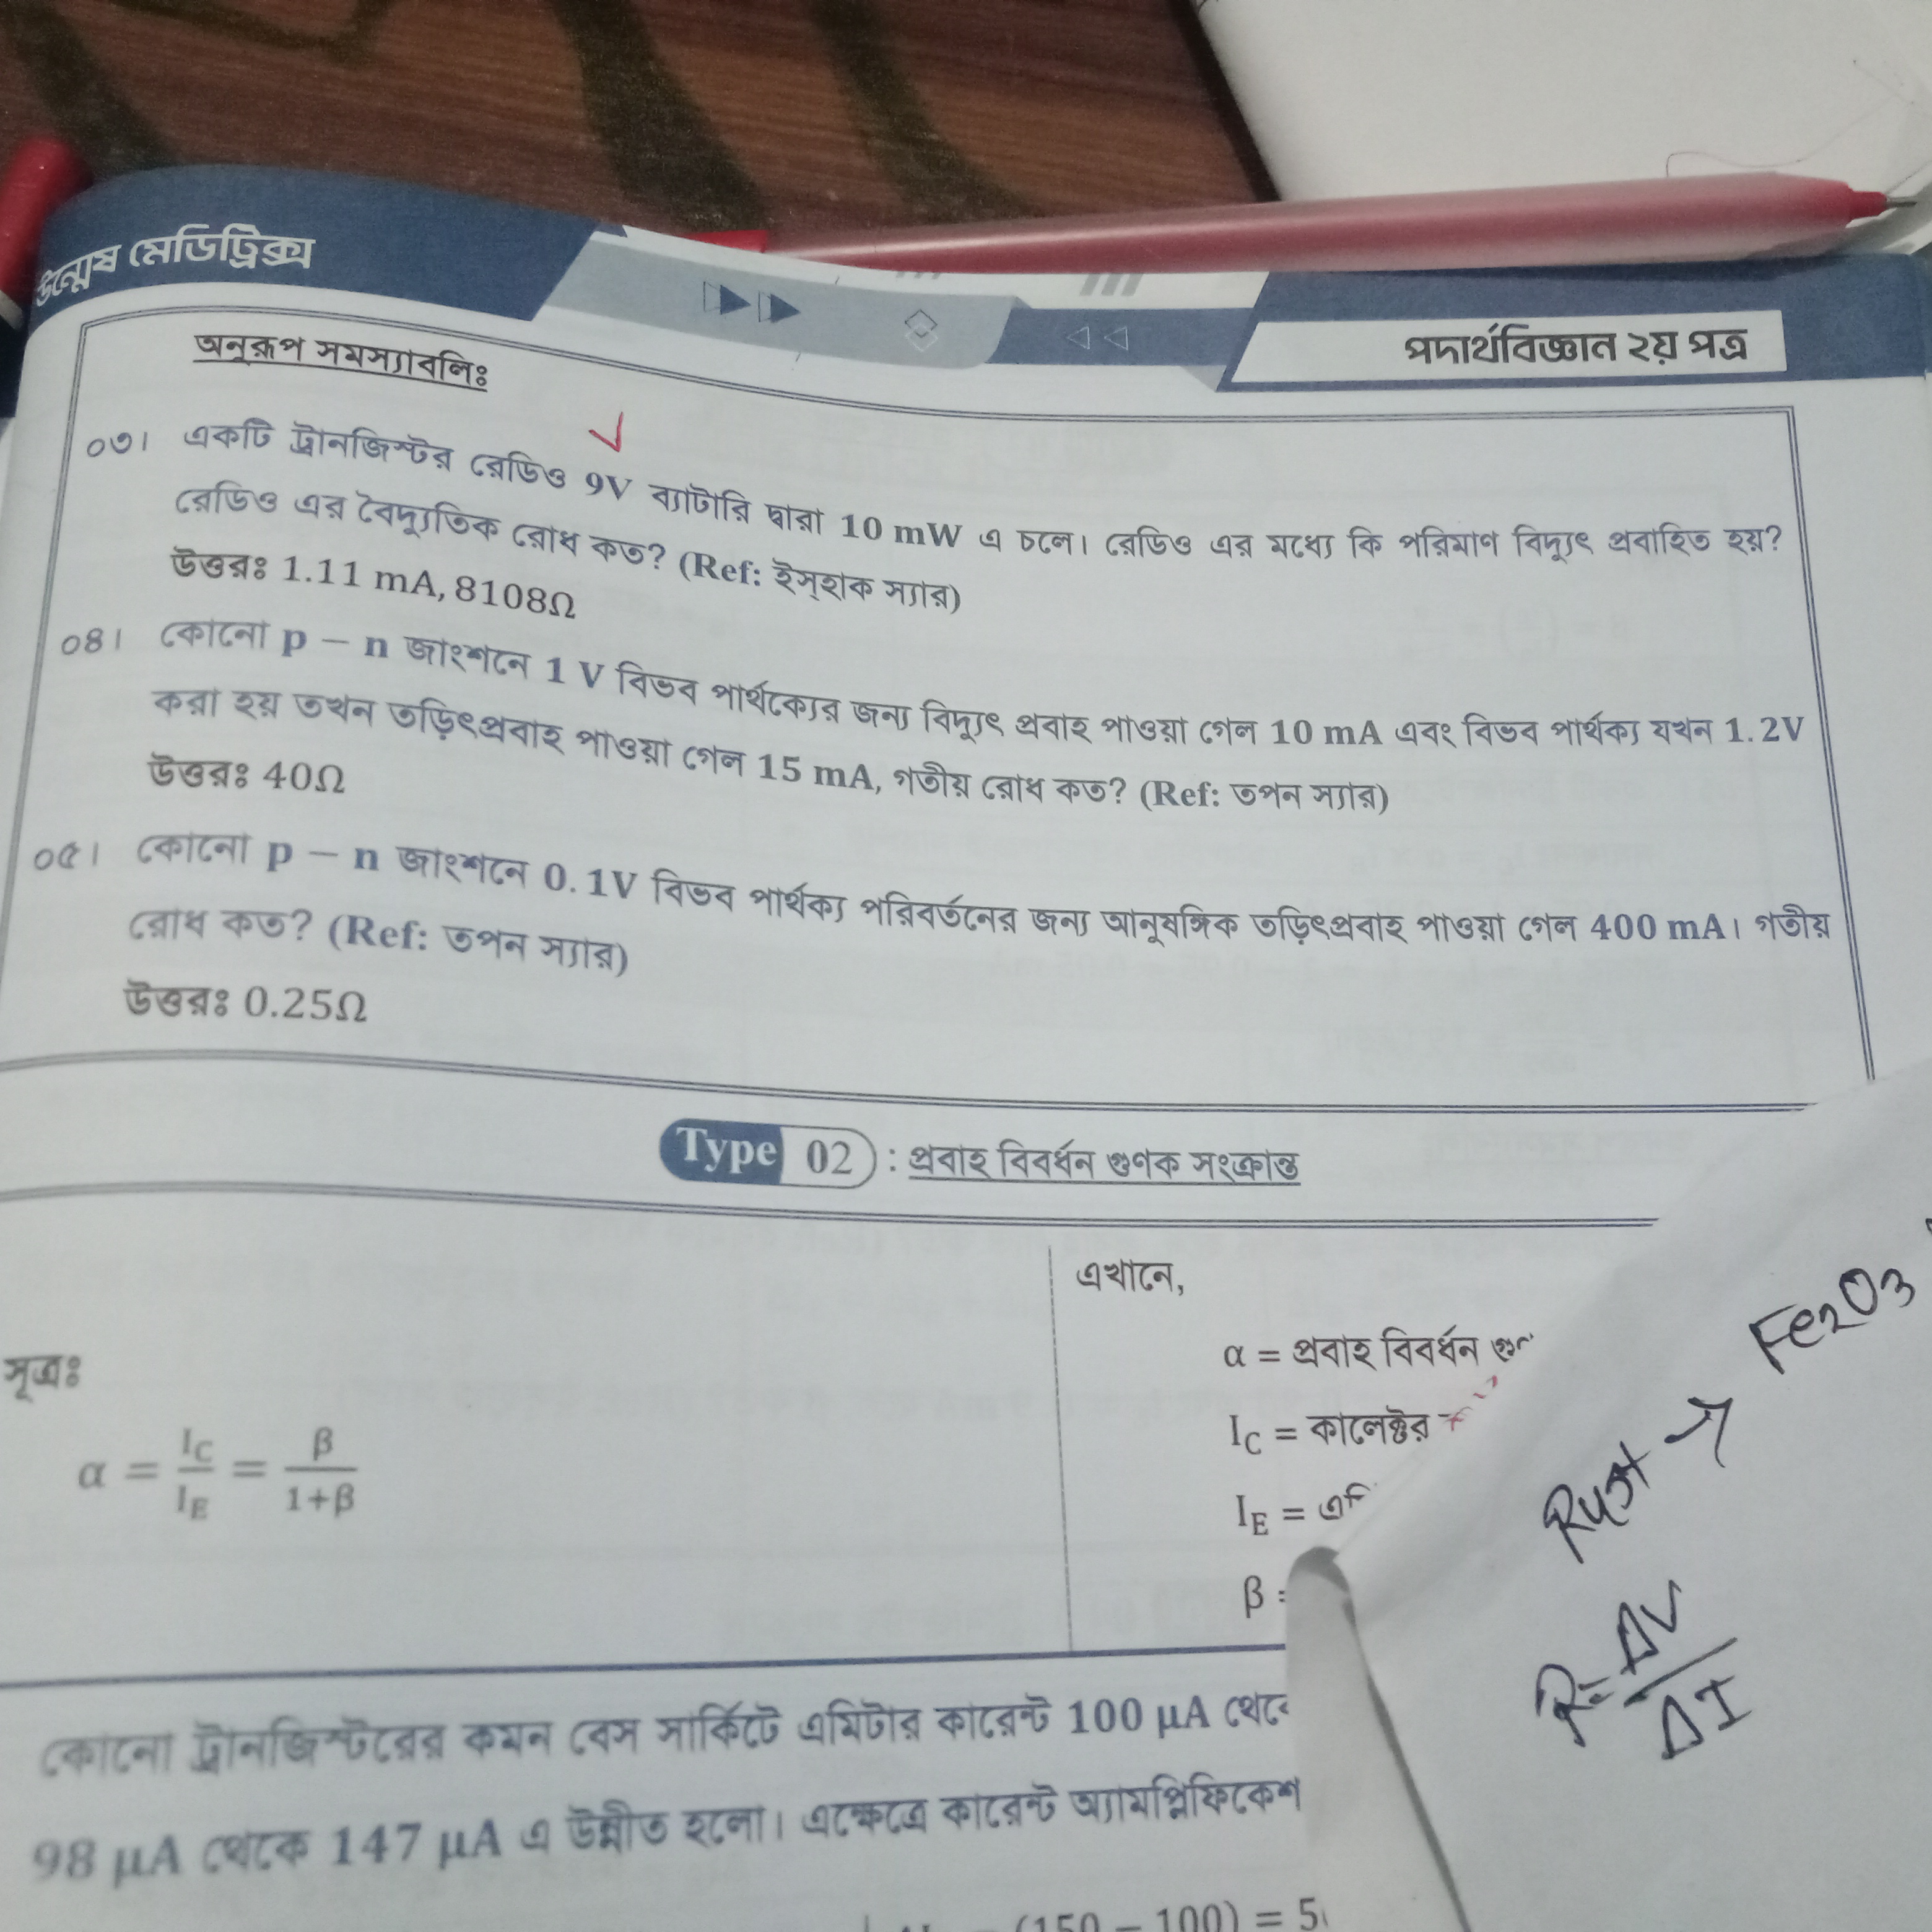 উন্মেষ মেডিট্রিক্স
পদার্থবিজ্ঞান ২য় পত্র
অনুরূপ সমস্যাবলিঃ
০৩। একটি ট্রানজিস্টর রেডিও 9V ব্যাটারি দ্বারা 10 mW এ চলে। রেডিও এর মধ্যে কি পরিমাণ বিদ্যুৎ প্রবাহিত হয়?
রেডিও এর বৈদ্যুতিক রোধ কত? (Ref: ইস্‌হাক স্যার)
উত্তরঃ 1.11 mA, 8108Ω
০৪। কোনো p − n জাংশনে 1 V বিভব পার্থক্যের জন্য বিদ্যুৎ প্রবাহ পাওয়া গেল 10 mA এবং বিভব পার্থক্য যখন 1.2V
করা হয় তখন তড়িৎপ্রবাহ পাওয়া গেল 15 mA, গতীয় রোধ কত? (Ref: তপন স্যার)
উত্তরঃ 40Ω
০৫। কোনো p − n জাংশনে 0.1V বিভব পার্থক্য পরিবর্তনের জন্য আনুষঙ্গিক তড়িৎপ্রবাহ পাওয়া গেল 400 mA। গতীয়
রোধ কত? (Ref: তপন স্যার)
উত্তরঃ 0.25Ω
Type 02 : প্রবাহ বিবর্ধন গুণক সংক্রান্ত
এখানে,
সূত্রঃ
α = I_C/I_E = β/1+β
α = প্রবাহ বিবর্ধন
I_C = কালেক্টর
I_E =
β =
Rust → Fe2O3
R = ΔV/ΔI
কোনো ট্রানজিস্টরের কমন বেস সার্কিটে এমিটার কারেন্ট 100 μA থেকে
98 μA থেকে 147 μA এ উন্নীত হলো। এক্ষেত্রে কারেন্ট অ্যামপ্লিফিকেশ
(150 − 100) = 5